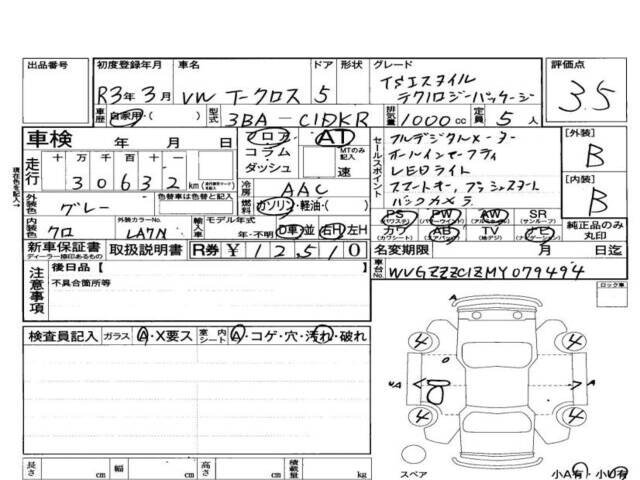 出品番号 初度登録年月 車名 ドア 形状 グレード 評価点
R3年3月 VW T-クロス 5 TSIスタイル テクノロジーパッケージ 3.5
車歴 自家用・( ) 型式 3BA-C1DKR 排気量 1000cc 定員 5人
車検 年 月 日 フロア AT セールスポイント フルデジタルメーター [外装]
走行 十 万 千 百 十 コラム MTのみ記入 B
30632 km ダッシュ 速 LEDライト
冷房 AAC スマートキー、プッシュスタート [内装]
外装色 グレー 色替車は色替と記入 燃料 ガソリン・軽油・( ) バックカメラ B
PS PW AW SR
(パワステ) (パワーウィンド) (アルミ) (サンルーフ)
内装色 クロ 外装カラーNo. LA7N 輸入車 モデル年式 年・不明 D車 並 右H 左H カワ AB TV ナビ 純正品のみ丸印
(カワシート) (エアバック) (地デジ) (ナビゲーション)
新車保証書 取扱説明書 R券 ¥12,510 名変期限 月 日迄
ディーラー捺印あるもの
現在色を記入→
注意事項 後日品【 車台No. WVGZZZC1ZMY079494
不具合箇所等 ロック車
検査員記入 ガラス A・X要ス 室内シート A・コゲ・穴・汚れ・破れ
A
4 4
A A
4 4
スペア 小A有・小U有
長さ cm 幅 cm 高さ cm 積載量 kg